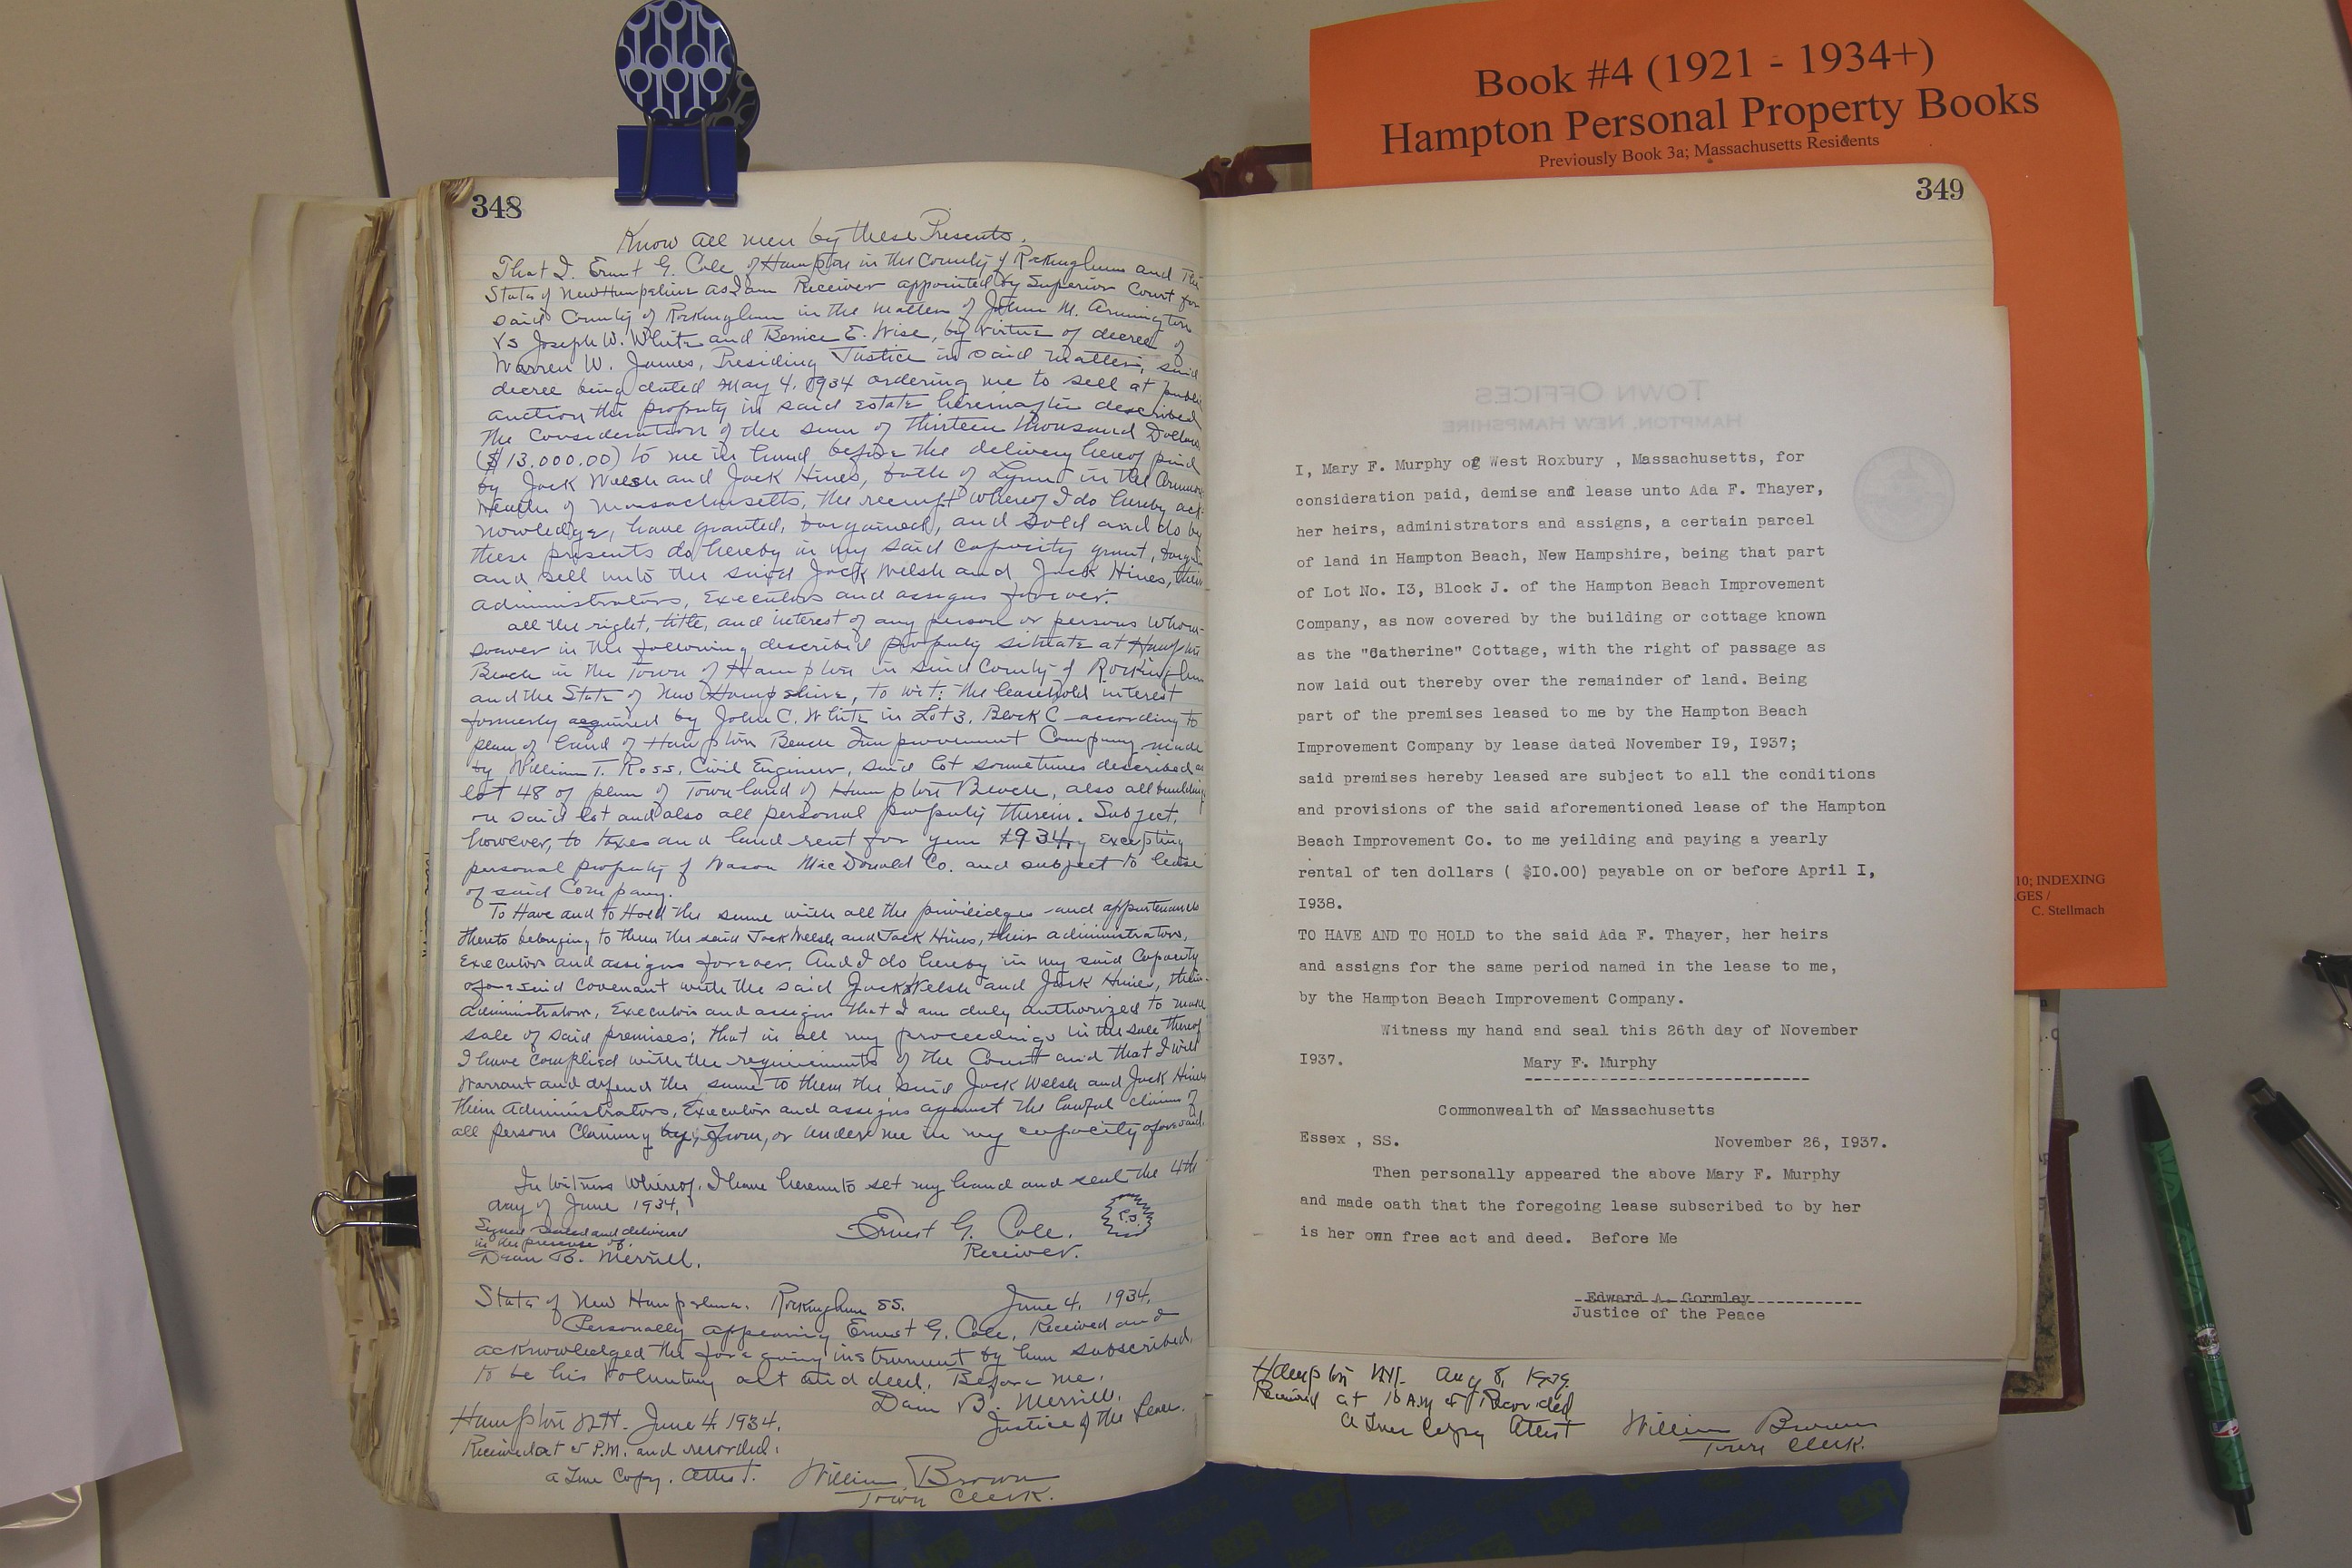 Book #4 (1921 - 1934+)
Hampton Personal Property Books
Previously Book 3a; Massachusetts Residents
10; INDEXING
GES /
C. Stellmach
348
Know all men by these Presents.
That I, Ernest G. Cole of Hampton in the County of Rockingham and the
State of New Hampshire as I am Receiver appointed by Superior Court for
said County of Rockingham in the matter of John M. Armington
vs Joseph W. White and Bernice E. Wise, by virtue of decree of
Warren W. James, Presiding Justice in said matter, said
decree being dated May 4, 1934 ordering me to sell at public
auction the property in said estate hereinafter described
the consideration of the sum of thirteen thousand Dollars
($13.000.00) to me in hand before the delivery hereof paid
by Jack Welsh and Jack Hines, both of Lynn in the Common-
wealth of Massachusetts, the receipt whereof I do hereby ack-
nowledge, have granted, bargained, and sold and do by
these presents do hereby in my said capacity grant, bargain
and sell unto the said Jack Welsh and Jack Hines, their
administrators, Executors and assigns forever.
all the right, title, and interest of any person or persons whom-
soever in the following described property situate at Hampton
Beach in the Town of Hampton in said County of Rockingham
and the State of New Hampshire, to wit: the leasehold interest
formerly acquired by John C. White in Lot 3, Block C according to
plan of land of Hampton Beach Improvement Company made
by William T. Ross, Civil Engineer, said lot sometimes described as
lot 48 of plan of Town land of Hampton Beach, also all buildings
on said lot and also all personal property therein. Subject,
however, to taxes and land rent for year 1934, excepting
personal property of Wason MacDonald Co. and subject to lease
of said Company.
To Have and to Hold the same with all the priviledges and appurtenances
thereto belonging to them the said Jack Welsh and Jack Hines, their administrators,
Executors and assigns forever. And I do hereby in my said Capacity
aforesaid covenant with the said Jack Welsh and Jack Hines, their
administrators, Executors and assigns that I am duly authorized to make
sale of said premises; that in all my proceedings in the sale thereof
I have complied with the requirements of the Court and that I will
warrant and defend the same to them the said Jack Welsh and Jack Hines
their Administrators, Executors and assigns against the lawful claims of
all persons claiming by, from, or under me in my capacity aforesaid.
In Witness Whereof, I have hereunto set my hand and seal the 4th
day of June 1934.
Signed sealed and delivered
in the presence of.
Dean B. Merrill.
Ernest G. Cole.
Receiver.
L.S.
State of New Hampshire. Rockingham SS. June 4, 1934.
Personally appearing Ernest G. Cole, Received and
acknowledged the foregoing instrument by him subscribed.
to be his voluntary act and deed. Before me.
Dean B. Merrill.
Justice of the Peace.
Hampton N.H. June 4 1934.
Received at 5 P.M. and recorded.
a True Copy. Attest. William Brown
Town Clerk.
349
TOWN OFFICES
HAMPTON, NEW HAMPSHIRE
I, Mary F. Murphy of West Roxbury , Massachusetts, for
consideration paid, demise and lease unto Ada F. Thayer,
her heirs, administrators and assigns, a certain parcel
of land in Hampton Beach, New Hampshire, being that part
of Lot No. I3, Block J. of the Hampton Beach Improvement
Company, as now covered by the building or cottage known
as the "Catherine" Cottage, with the right of passage as
now laid out thereby over the remainder of land. Being
part of the premises leased to me by the Hampton Beach
Improvement Company by lease dated November I9, I937;
said premises hereby leased are subject to all the conditions
and provisions of the said aforementioned lease of the Hampton
Beach Improvement Co. to me yeilding and paying a yearly
rental of ten dollars ( $I0.00) payable on or before April I,
I938.
TO HAVE AND TO HOLD to the said Ada F. Thayer, her heirs
and assigns for the same period named in the lease to me,
by the Hampton Beach Improvement Company.
Witness my hand and seal this 26th day of November
I937. Mary F. Murphy
Commonwealth of Massachusetts
Essex , SS. November 26, I937.
Then personally appeared the above Mary F. Murphy
and made oath that the foregoing lease subscribed to by her
is her own free act and deed. Before Me
Edward A. Gormley
Justice of the Peace
Hampton N.H. Aug 8, 1939.
Received at 10 A.M & Recorded
a True Copy Attest William Brown
Town Clerk.